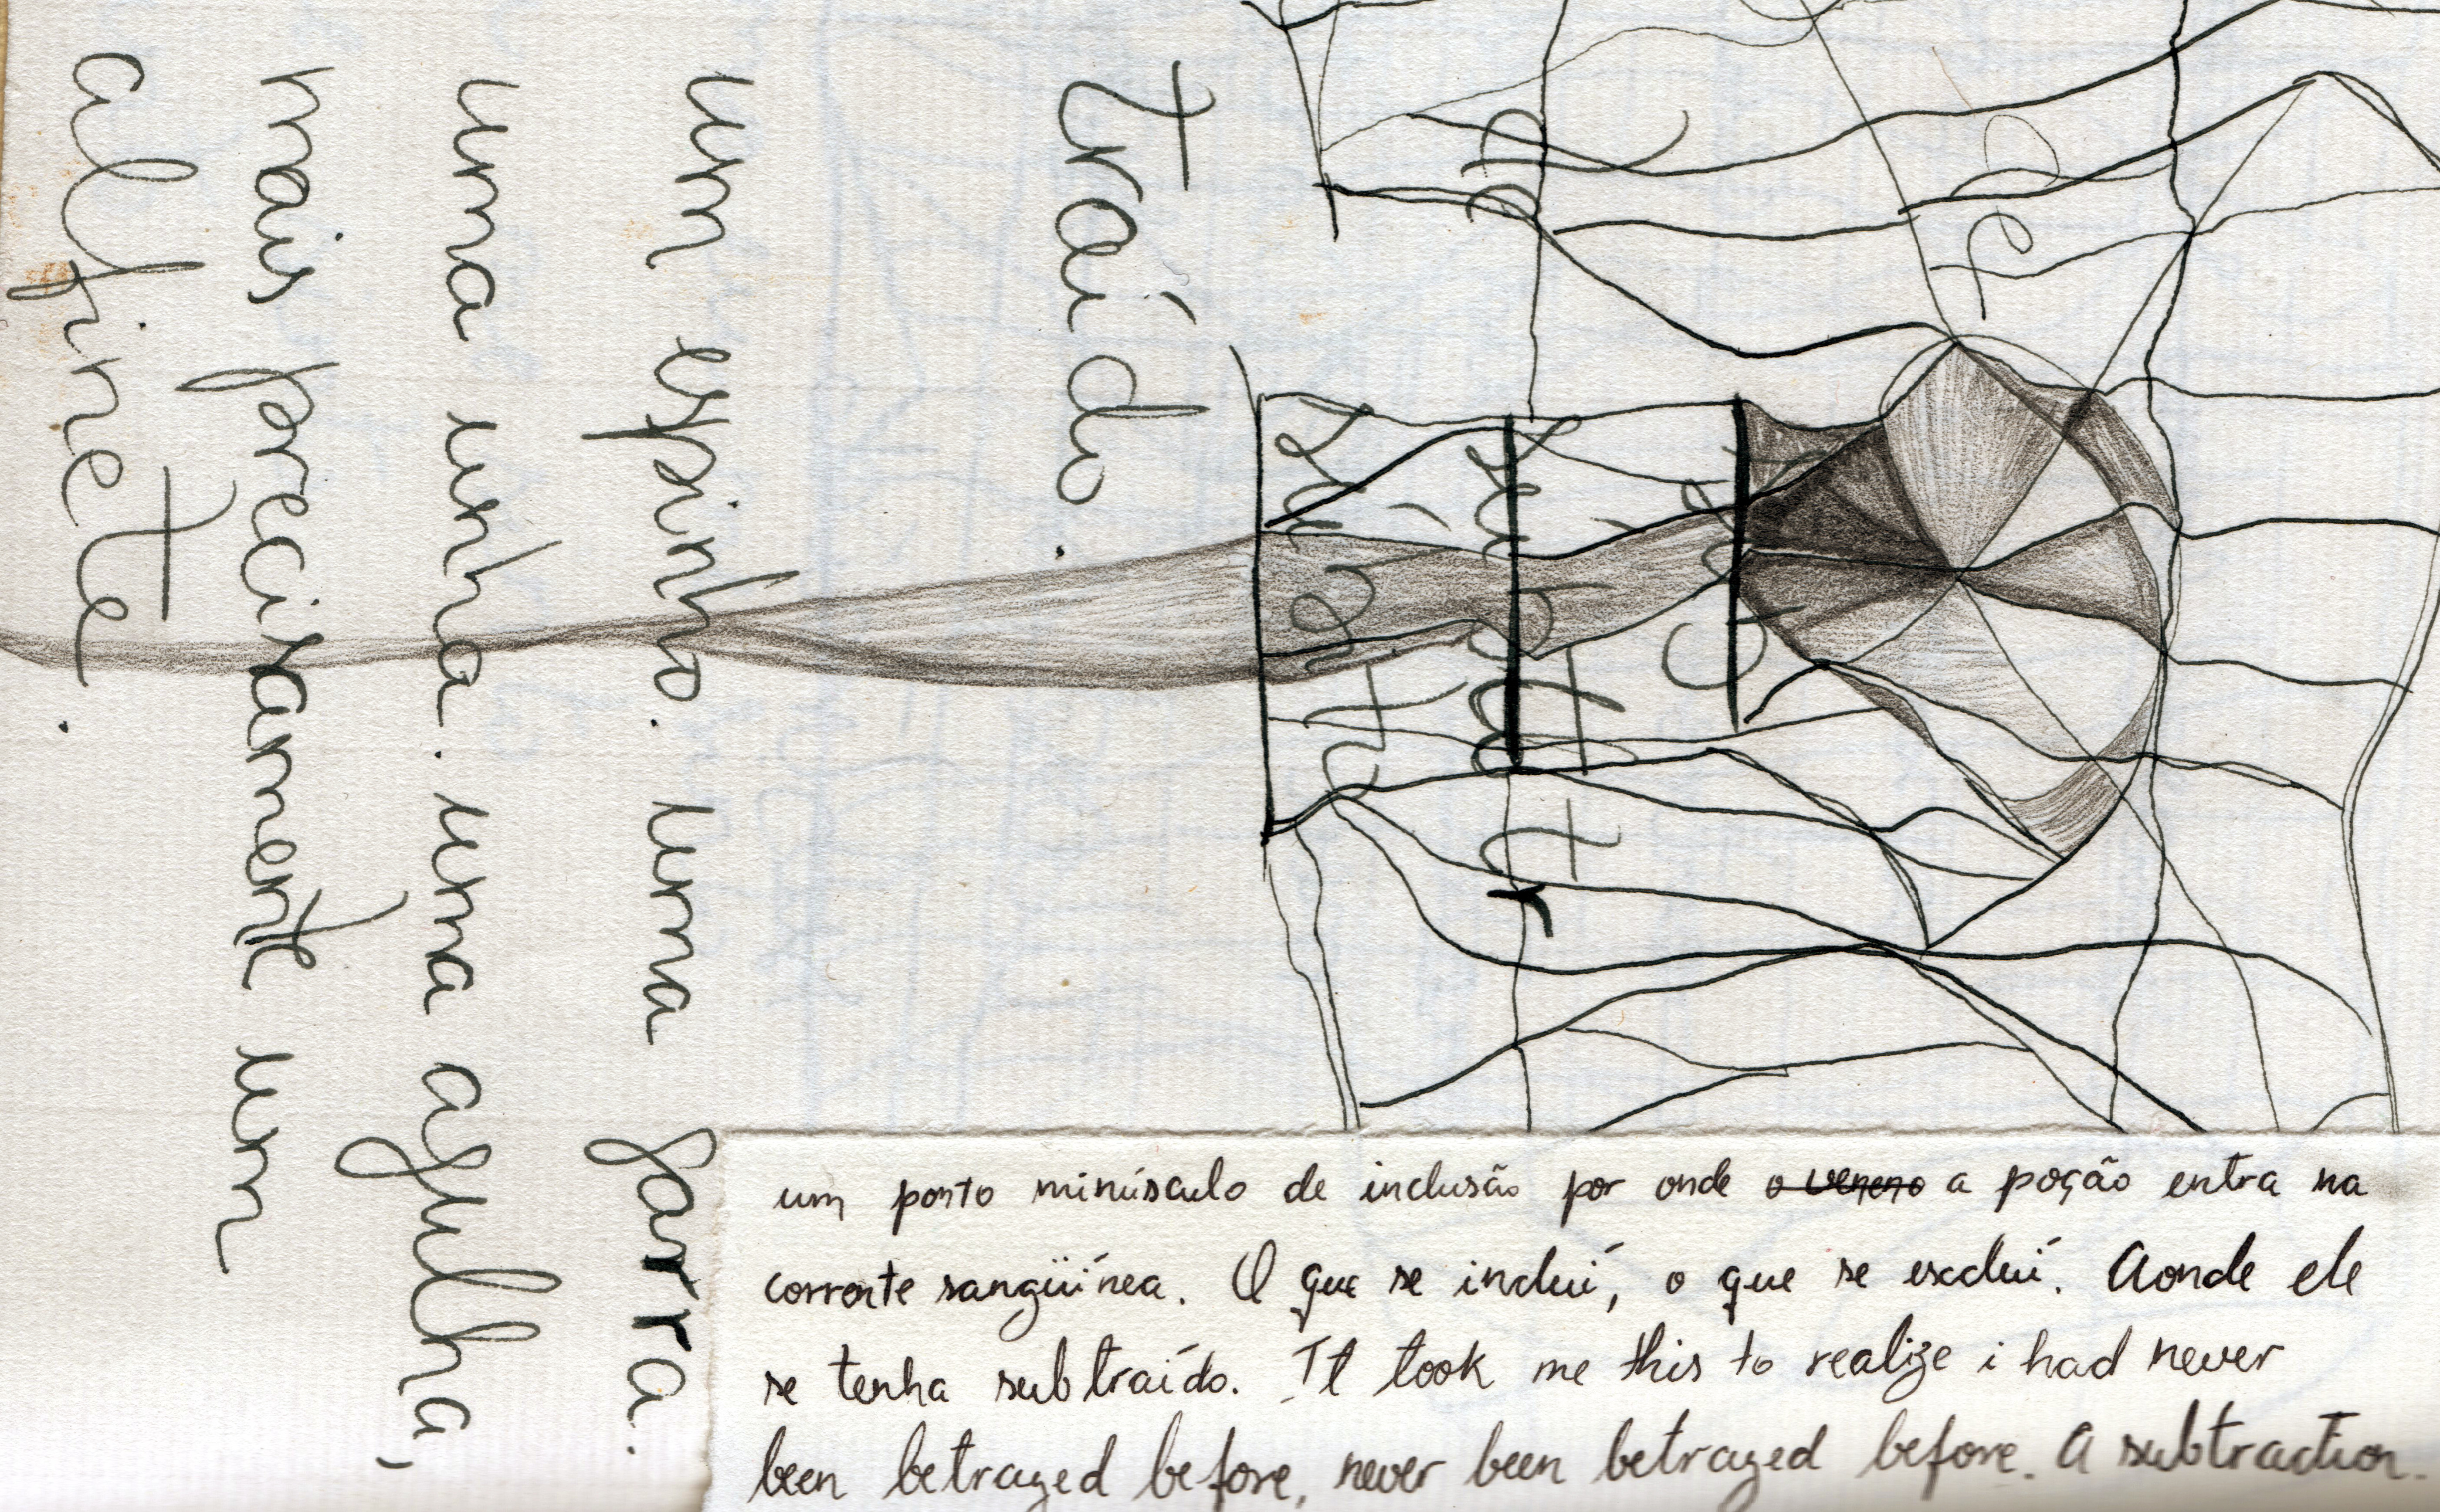 traído.
um espinho. uma garra.
uma unha. uma agulha,
mais precisamente um
alfinete.
um ponto minúsculo de inclusão por onde o veneno a poção entra na
corrente sangüínea. O que se incluí, o que se excluí. Aonde ele
se tenha subtraído. It took me this to realize i had never
been betrayed before, never been betrayed before. A subtraction.